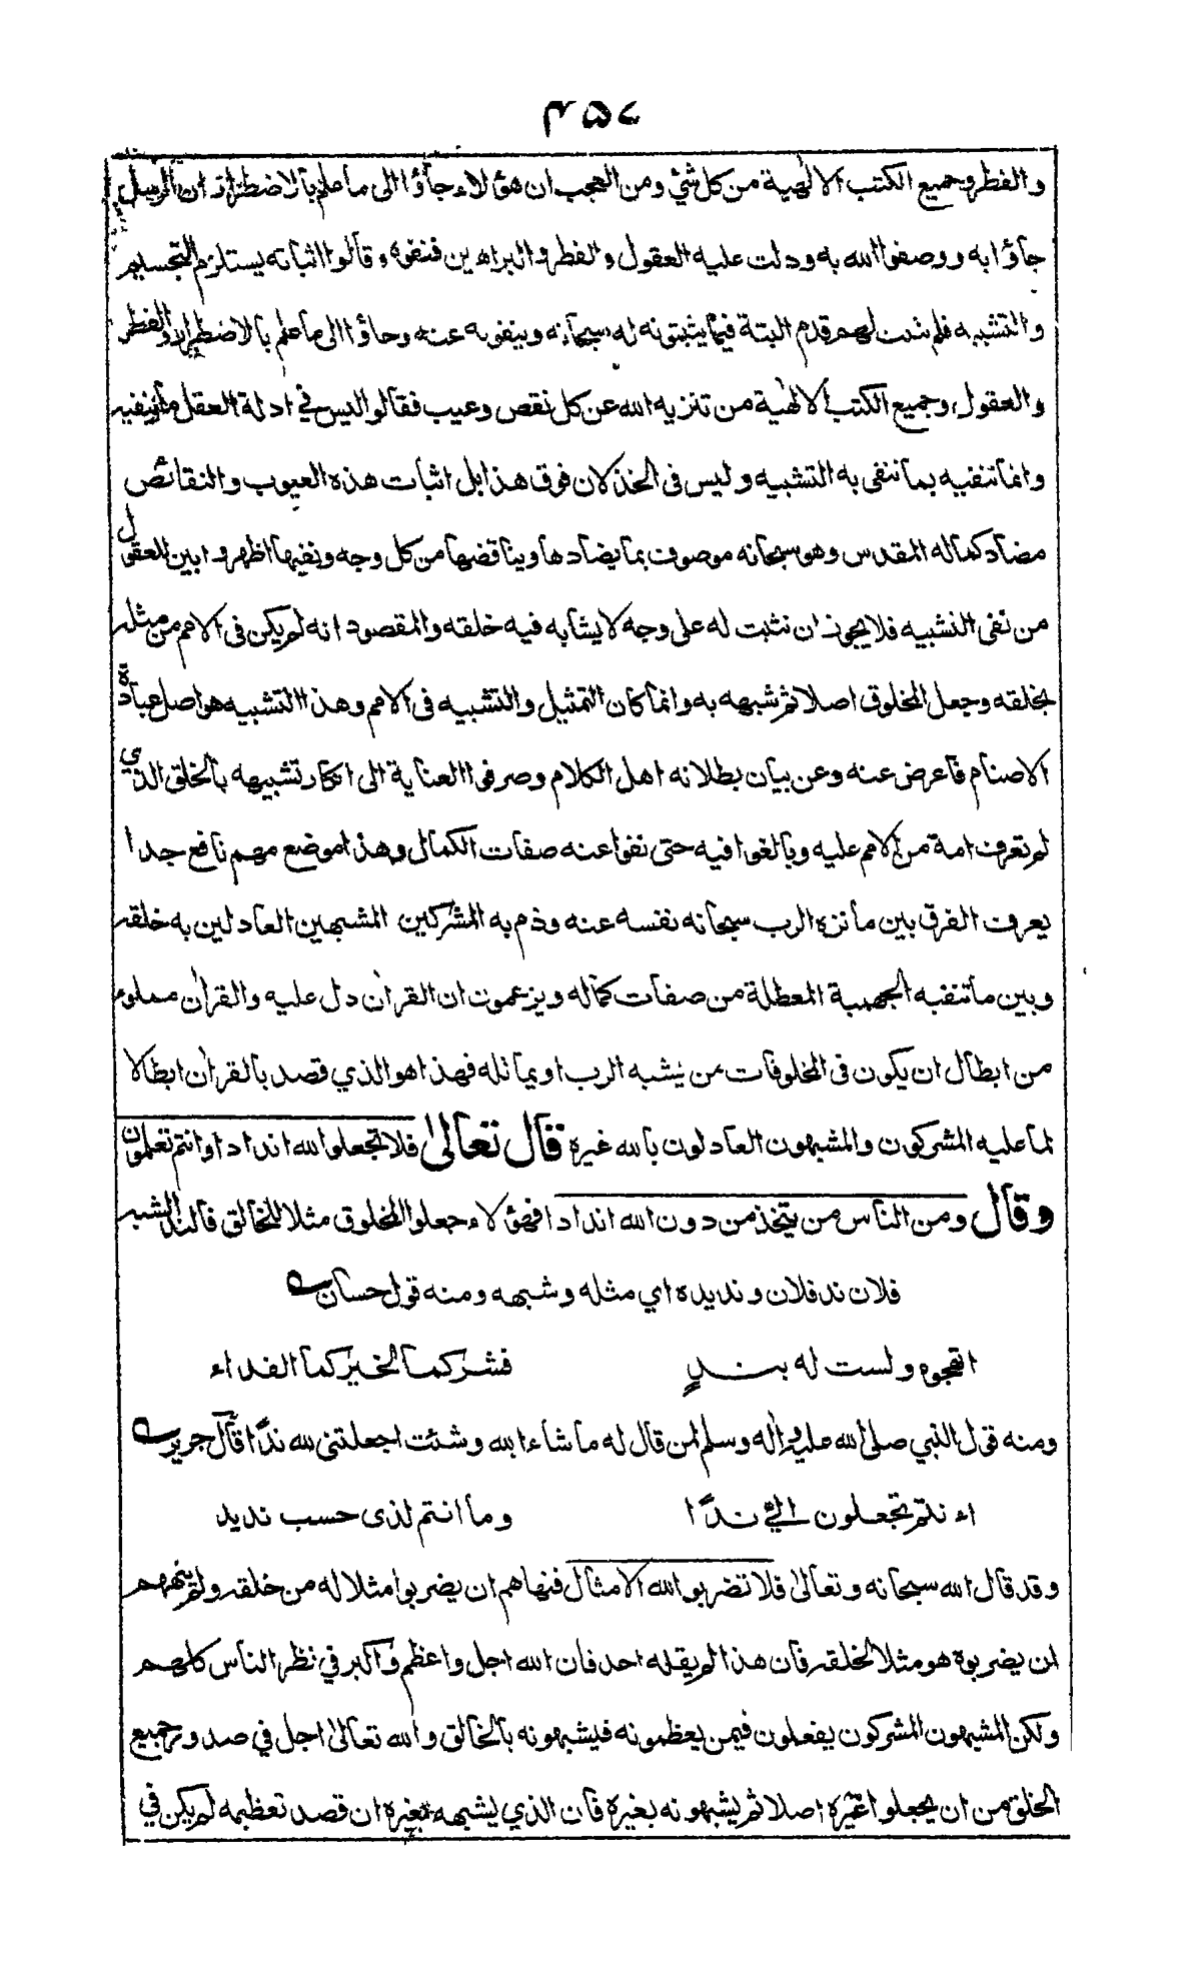 ۴۵۷
والفطر وجميع الكتب الالهية من كل شئ ومن العجب ان هؤلاء جاؤا الى ما علم بالاضطرار ان الرسل
جاؤا به ووصفوا الله به ودلت عليه العقول والفطر والبراهين فنفوه وقالوا اثباته يستلزم التجسيم
والتشبيه فلم يثبت لهم قدم البتة فيما يثبتونه له سبحانه وينفونه عنه وجاؤا الى ما علم بالاضطرار والفطر
والعقول وجميع الكتب الالهية من تنزيه الله عن كل نقص وعيب فقالوا ليس في ادلة العقل ما ينفيه
وانما ننفيه بما ننفى به التشبيه وليس فى الخذلان فوق هذا بل اثبات هذه العيوب والنقائص
مضاد كماله المقدس وهو سبحانه موصوف بما يضادها ويناقضها من كل وجه ونفيها اظهر وابين للعقول
من نفى التشبيه فلا يجوز ان نثبت له على وجه لا يشابه فيه خلقه والمقصود انه لم يكن فى الامم من مثله
بخلقه وجعل المخلوق اصلا ثم شبهه به وانما كان التمثيل والتشبيه فى الامم وهذا التشبيه هو اصل عبادة
الاصنام فاعرض عنه وعن بيان بطلانه اهل الكلام وصرفوا العناية الى انكار تشبيهه بالخلق الذي
لم تعرف امة من الامم عليه وبالغوا فيه حتى نفوا عنه صفات الكمال وهذا موضع مهم نافع جدا
يعرف الفرق بين ما نزه الرب سبحانه نفسه عنه وذم به المشركين المشبهين العادلين به خلقه
وبين ما تنفيه الجهمية المعطلة من صفات كماله ويزعمون ان القرآن دل عليه والقرآن مملوء
من ابطال ان يكون فى المخلوقات من يشبه الرب او يماثله فهذا هو الذي قصد بالقرآن ابطالا
لما عليه المشركون والمشبهون العادلون بالله غيره قال تعالىٰ فلا تجعلوا لله اندادا وانتم تعلمون
وقال ومن الناس من يتخذ من دون الله اندادا فهؤلاء جعلوا المخلوق مثلا للخالق فالند الشبه
فلان ند فلان ونديده اي مثله وشبهه ومنه قول حسان
اتهجوه ولست له بندٍ فشركما لخيركما الفداء
ومنه قول النبي صلى الله عليه وآله وسلم لمن قال له ما شاء الله وشئت اجعلتنى لله ندًا قال جرير
تجعلون اليّ ندًا وما انتم لذى حسب نديد
وقد قال الله سبحانه وتعالىٰ فلا تضربوا لله الامثال فنهاهم ان يضربوا مثلا له من خلقه ولم ينههم
ان يضربوه هو مثلا لخلقه فان هذا لم يقله احد فان الله اجل واعظم واكبر في نظر الناس كلهم
ولكن المشبهون المشركون يفعلون فيمن يعظمونه فيشبهونه بالخالق والله تعالىٰ اجل في صدور جميع
الخلق من ان يجعلوا غيره اصلا ثم يشبهونه بغيره فان الذي يشبهه بغيره ان قصد تعظيمه لم يكن في